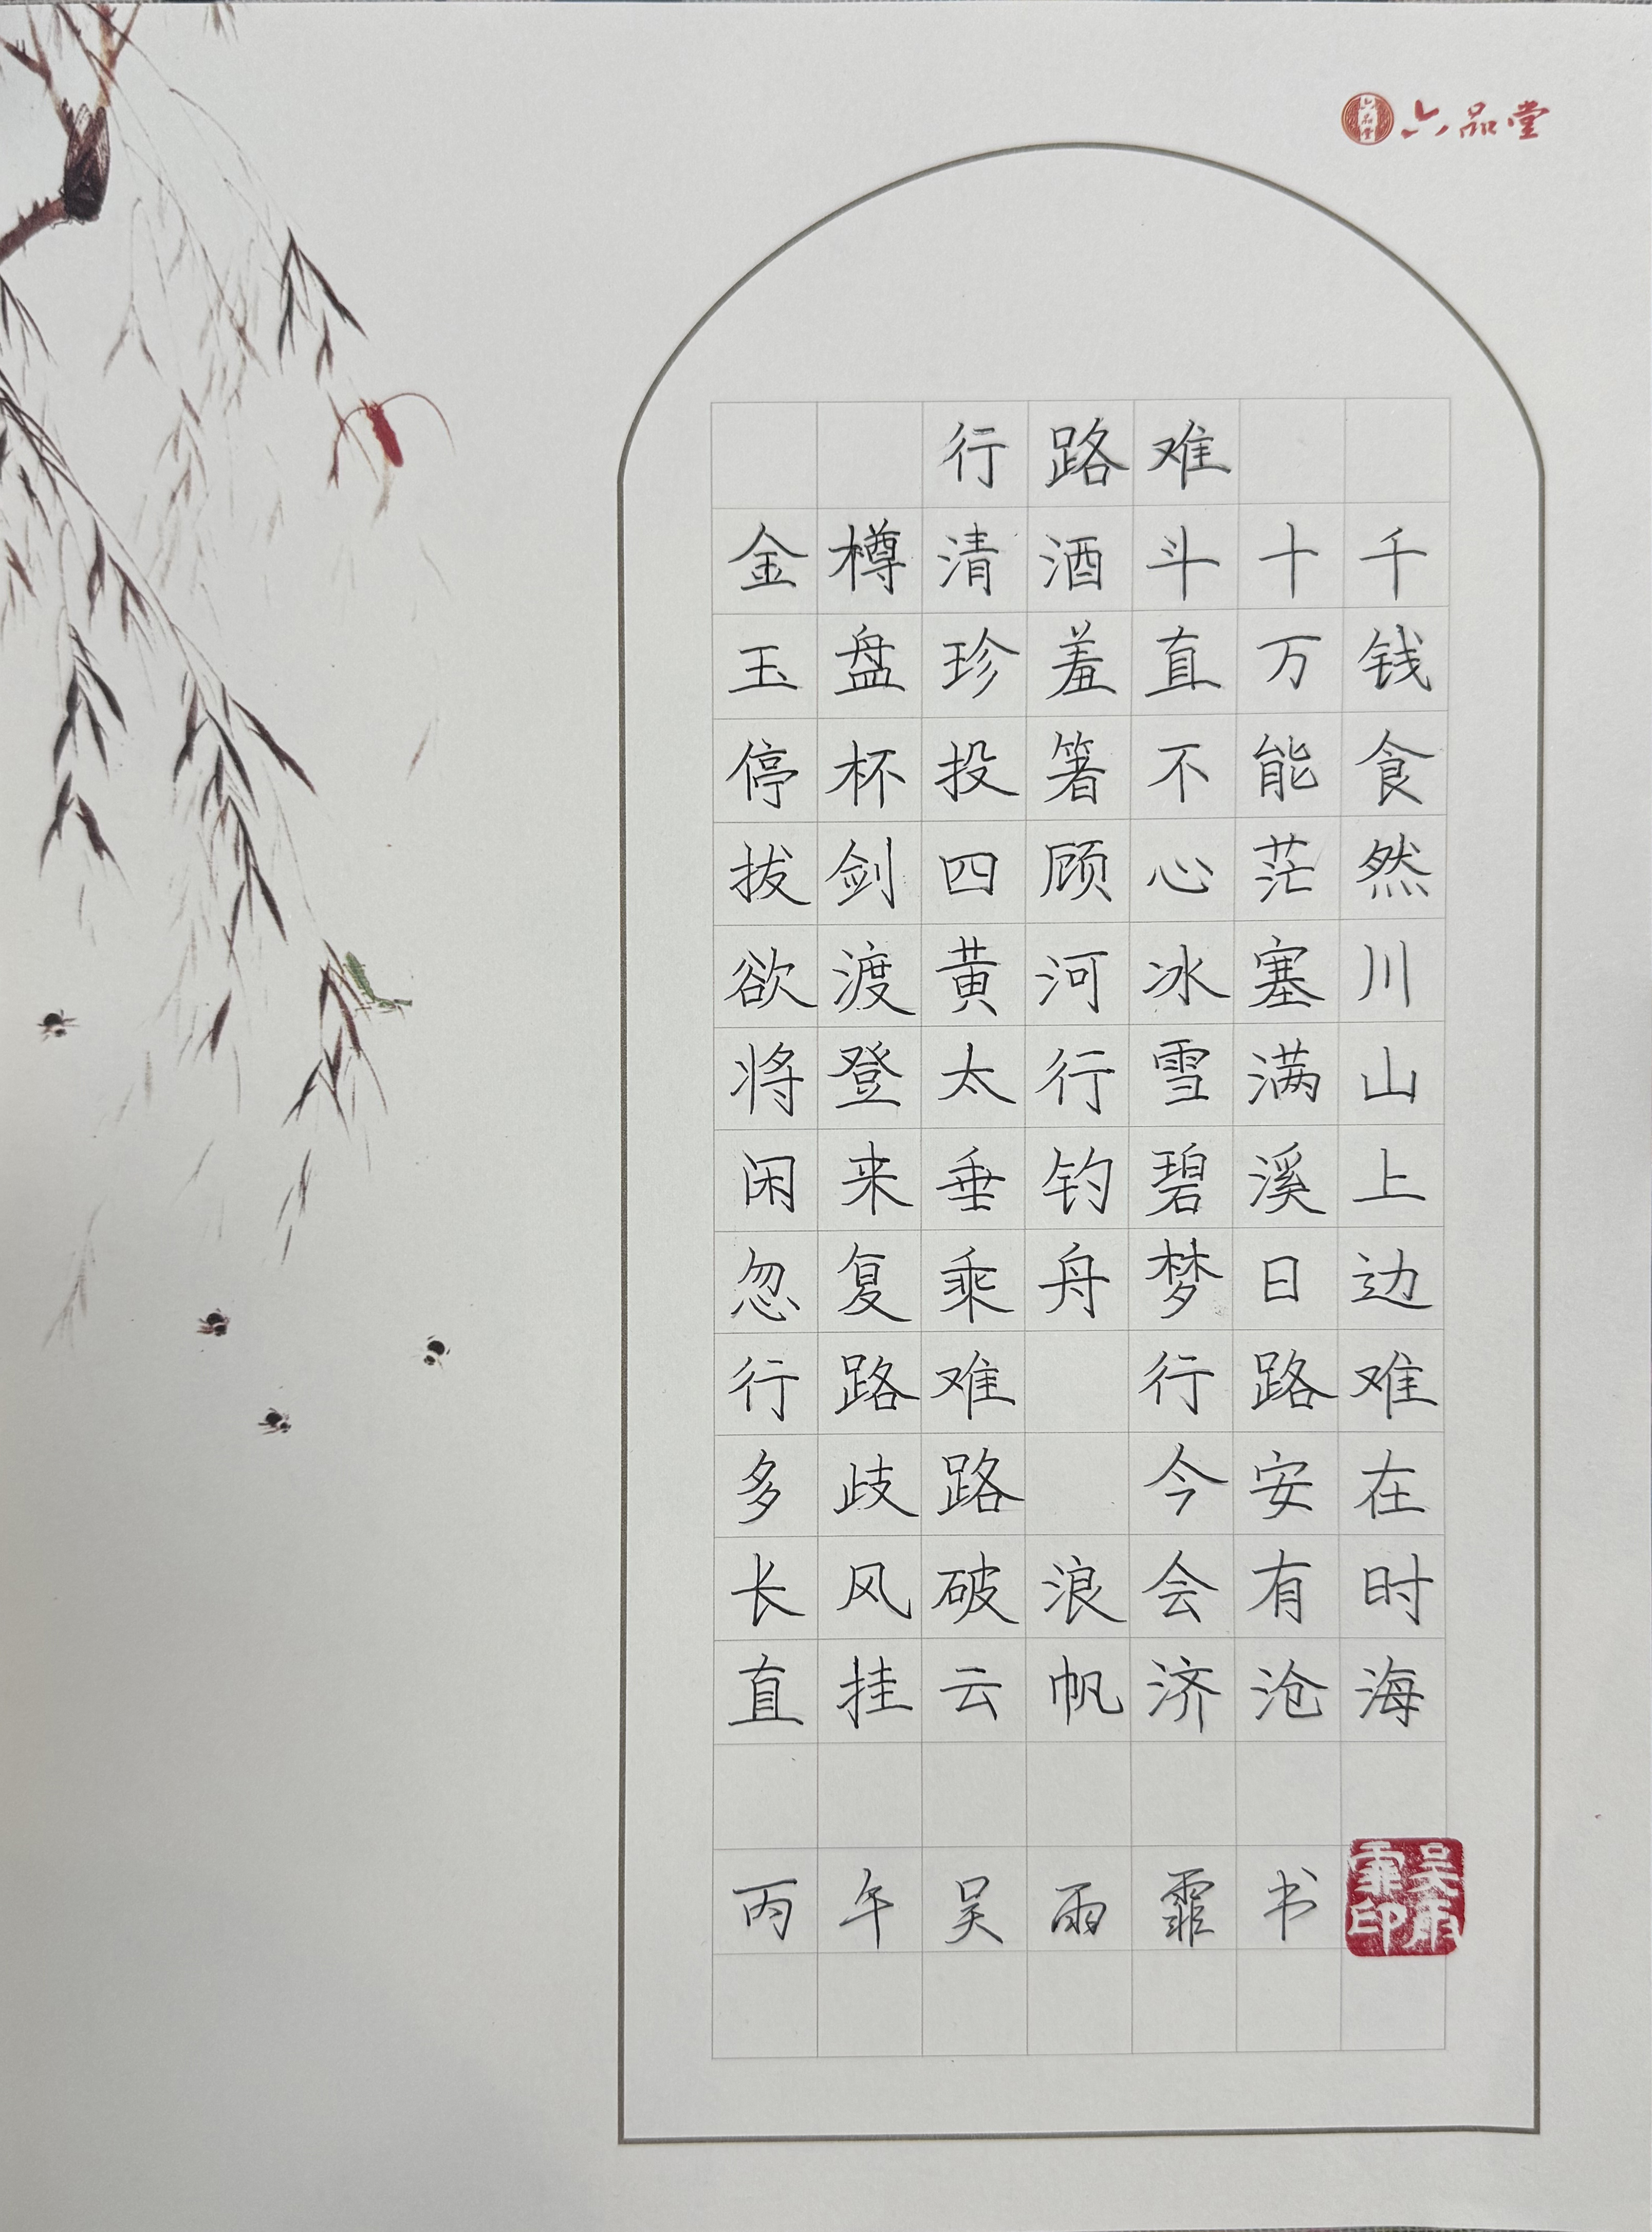 六品堂
行路难
金樽清酒斗十千
玉盘珍羞直万钱
停杯投箸不能食
拔剑四顾心茫然
欲渡黄河冰塞川
将登太行雪满山
闲来垂钓碧溪上
忽复乘舟梦日边
行路难 行路难
多歧路 今安在
长风破浪会有时
直挂云帆济沧海
丙午吴雨霏书
吴雨霏印